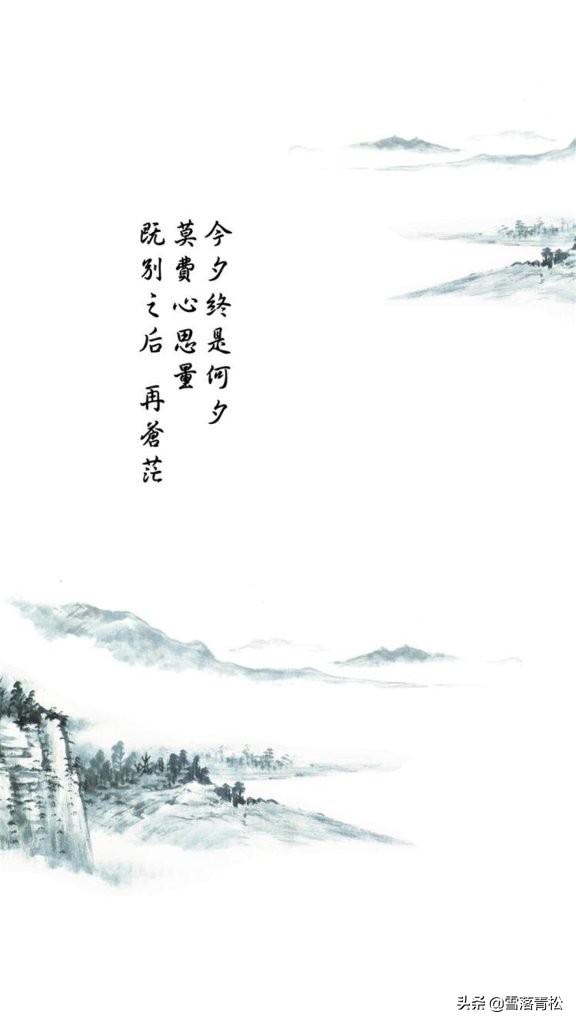 今夕终是何夕
莫費心思量
既别之后 再蒼茫
头条 @雪落青松